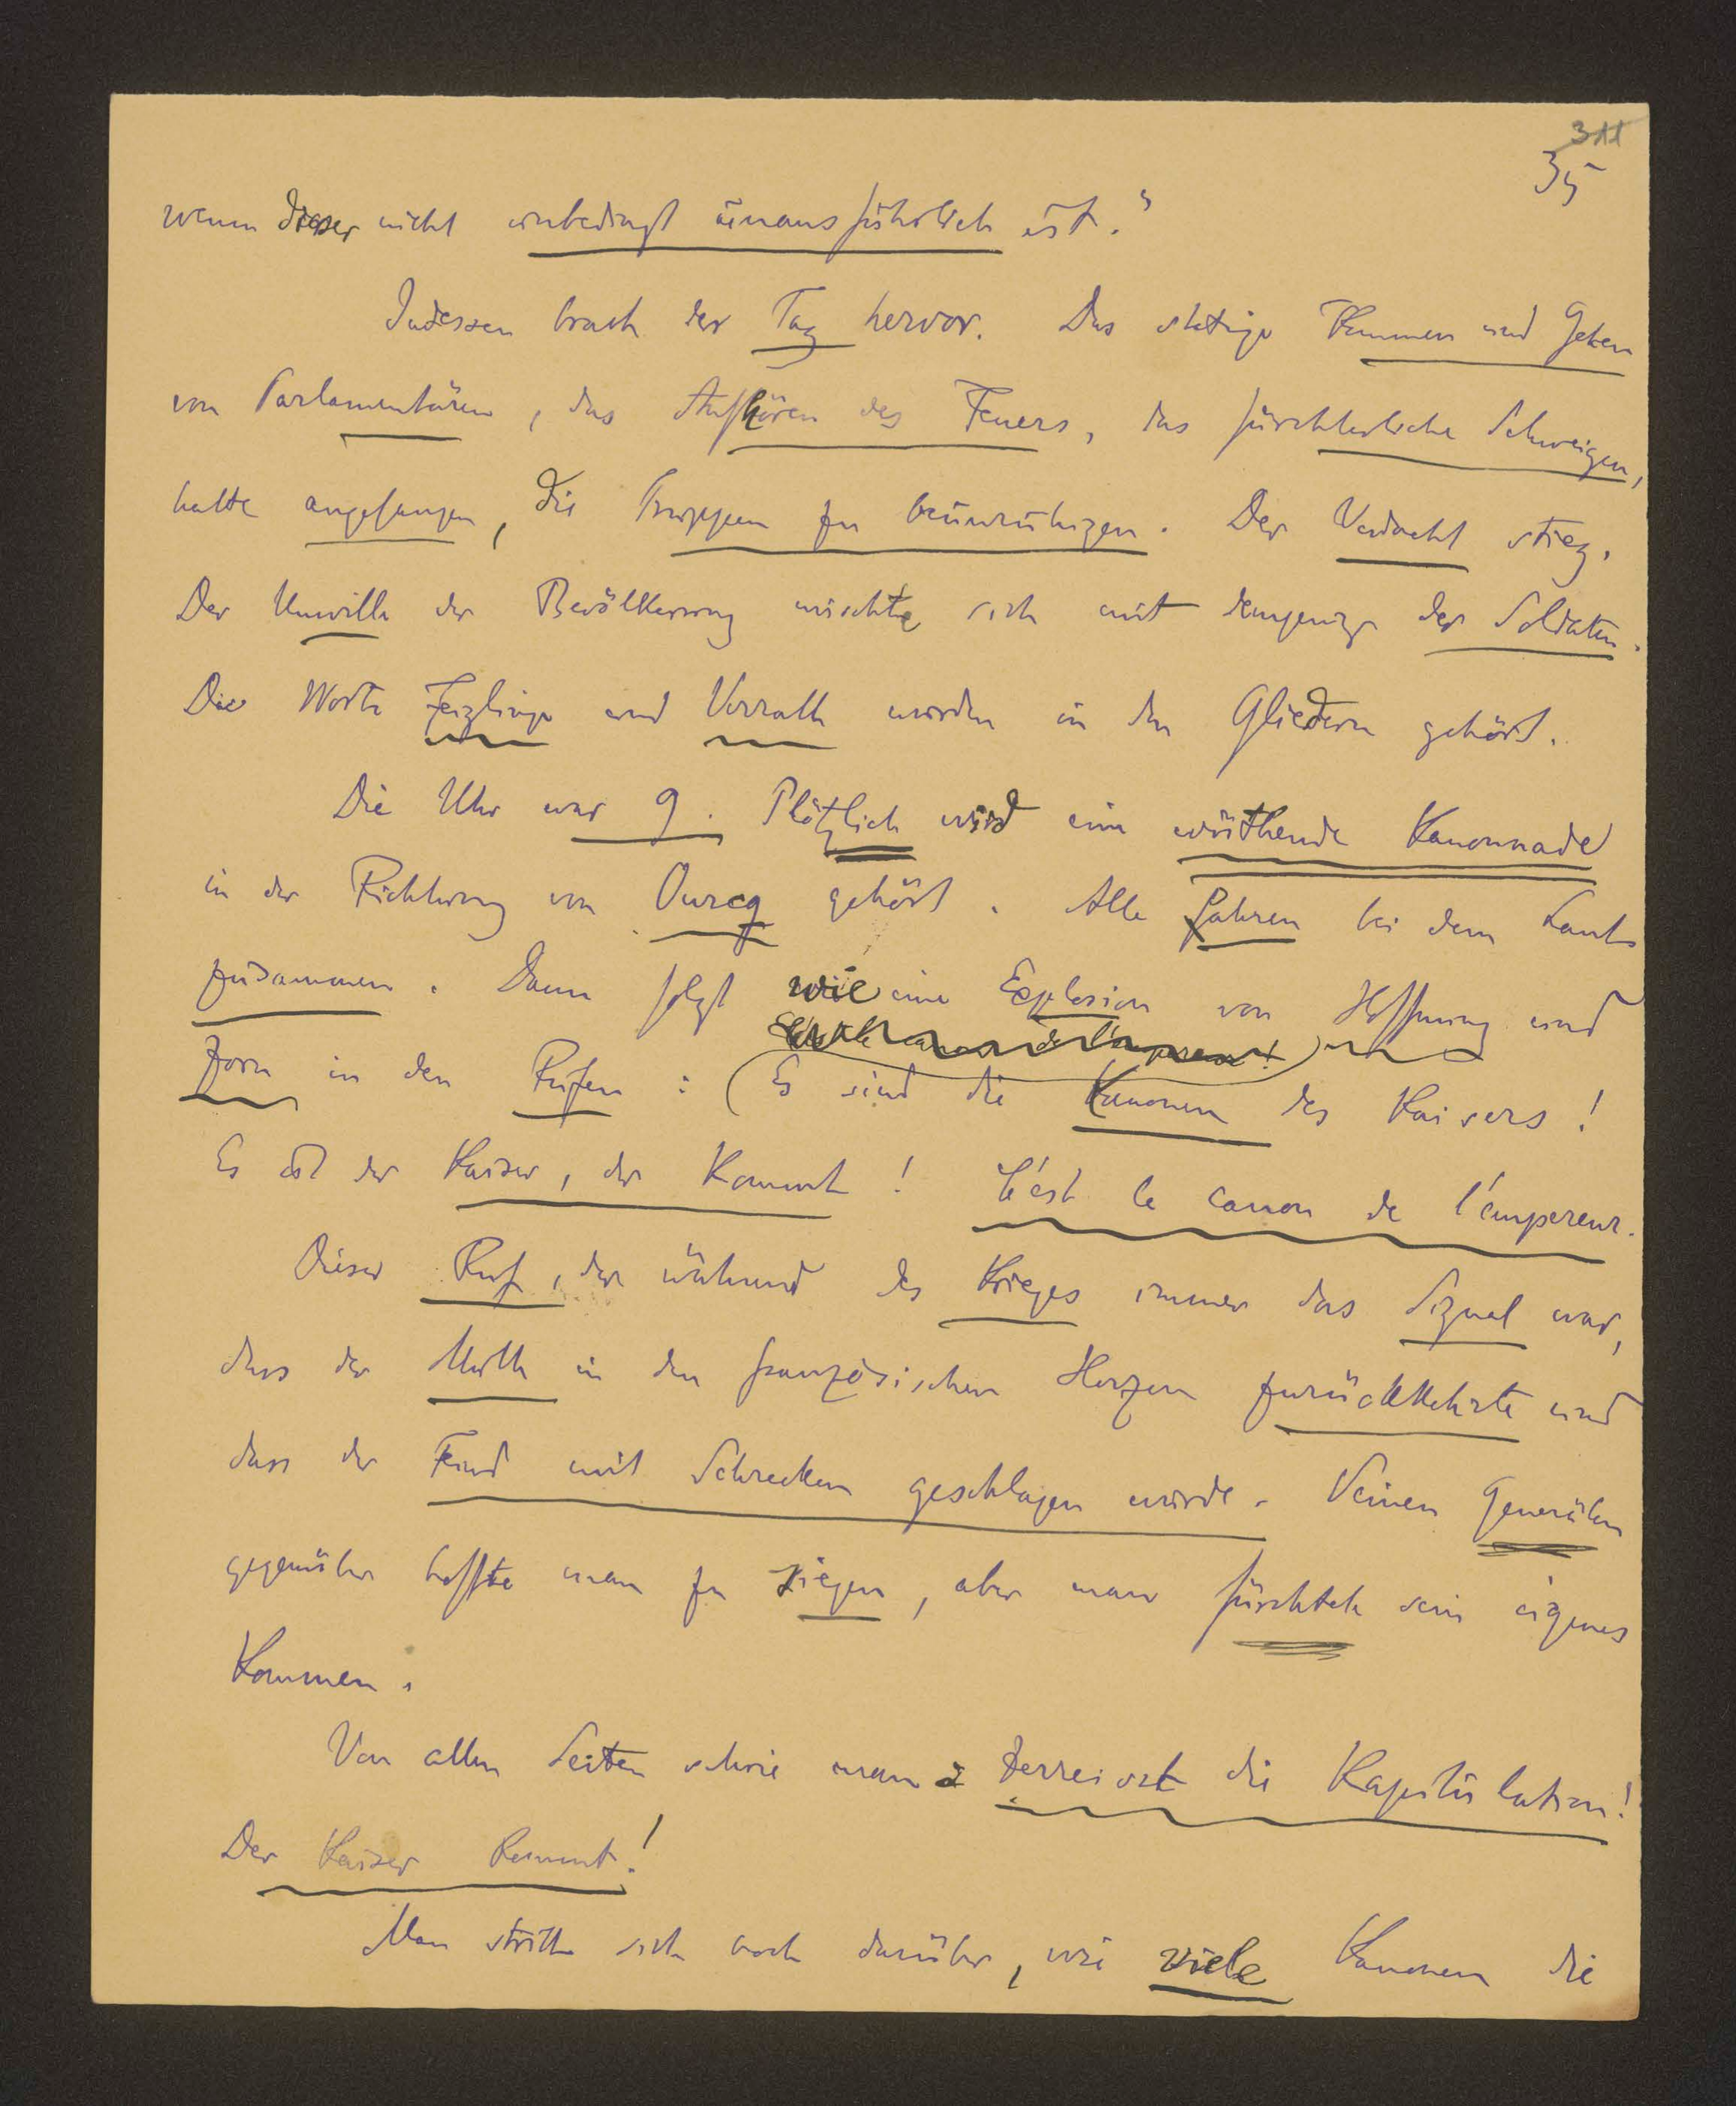 311
35
wenn dieser nicht unbedingt unausführlich ist."
Indessen brach der Tag hervor. Das stetige Kommen und Gehen
von Parlamentären, das Aufhören des Feuers, das fürchterliche Schweigen,
hatte angefangen, die Truppen zu beunruhigen. Der Verdacht stieg.
Der Unwille der Bevölkerung mischte sich mit demjenige der Soldaten.
Die Worte Feiglinge und Verrath wurden in den Gliedern gehört.
Die Uhr war 9. Plötzlich wird eine wüthende Kanonnade
in der Richtung von Ourcq gehört. Alle fahren bei dem Laute
zusammen. Dann folgt wie eine Explosion von Hoffnung und
Zorn in den Rufen: (Es sind die Kanonen des Kaisers!
Es ist der Kaiser, der kommt! C'est le canon de l'empereur.
Dieser Ruf, der während des Krieges immer das Signal war,
dass der Muth in den französischen Herzen zurückkehrte und
dass der Feind mit Schrecken geschlagen wurde. Seinen Generälen
gegenüber hoffte man zu siegen, aber man fürchtete sein eigenes
Kommen.
Von allen Seiten schrie man: Zerreisst die Kapitulation!
Der Kaiser kommt!
Man stritt sich noch darüber, wie viele Kanonen die